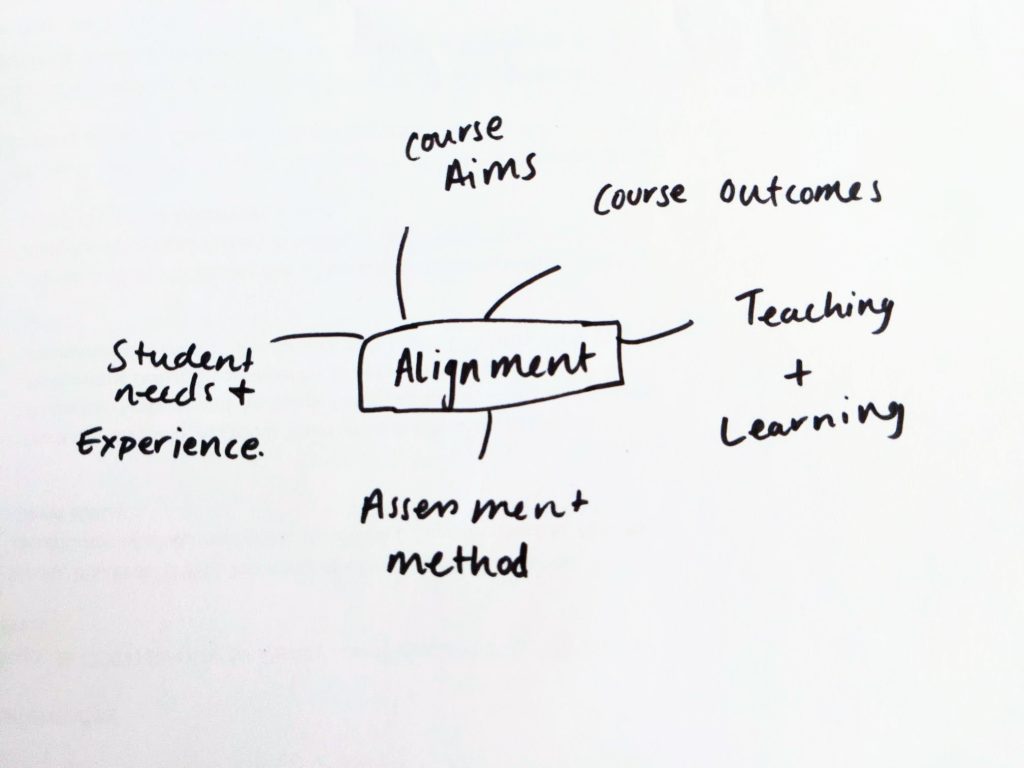 Course
Aims
Course Outcomes
Teaching
+
Learning
Alignment
Student
needs +
Experience.
Assessment
method